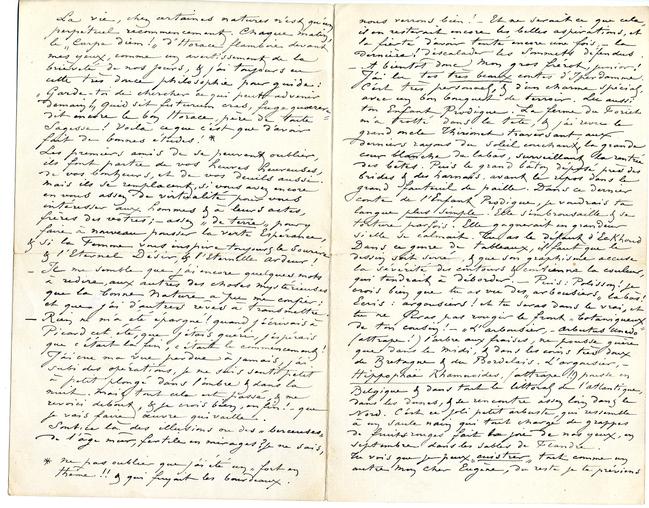 La vie, chez certaines natures n'est qu'un
perpétuel recommencement. Chaque matin
le "Carpe diem!" d'Horace flamboie devant
mes yeux, comme un avertissement de la
brièveté de nos jours, & j'ai toujours eu
cette très douce philosophie pour guide:
Garde-toi de chercher ce qui peut advenir
demain! Quid sit futurum cras, fuge quaerere
dit encore le bon Horace, père de toute
Sagesse! Voilà ce que c'est que d'avoir
fait de bonnes études! *
Les premiers amis de se peuvent oublier,
ils font partie de vos heures heureuses,
de vos bonheurs, et de vos deuils aussi.
Mais ils se remplacent, si vous avez encore
en vous assez de virtualité pour vous
intéresser aux hommes & à leurs actes,
frères des vôtres; assez de terre, pour y
faire à nouveau pousser la verte Espérance,
& si la Femme vous inspire toujours le Sourire
& l'Eternel Désir, & l'Eternelle Ardeur!
– Il me semble que j'ai encore quelques mots
à redire, aux autres des choses mystérieuses
que la bonne Nature a pu me confier;
et que j'ai d'autres rêves à transmettre
– Rien ne m'a été épargné! quand j'écrivais à
Picard cet été, que j'étais guéri, j'espérais
que c'était la fin, c'était le commencement!
J'ai cru ma vue perdue à jamais, j'ai
subi des opérations, je me suis senti petit
à petit plongé dans l'ombre & dans la
nuit. Mais tout cela est passé, & me
revoici debout, & je crois bien, enfin! que
je vais faire œuvre qui vaille!
Sont-ce là des illusions ou des "berceuses"
de l'âge mûr, fertile en mirages? Je ne sais,
* ne pas oublier que j'ai été un "fort en
thème"!! & qui fuyait les bordeaux.
nous verrons bien! – Et ne serait-ce que cela,
il en resterait encore les belles aspirations, et
la fierté d'avoir tenté encore une fois – la
dernière! l'escalade des Sommets défendus.
– A bientôt donc mon gros frérot, junior!
J'ai lu tes très beaux contes d'Yperdamme.
C'est très personnel, & d'un charme spécial,
avec un bon bouquet de terroir. Lu aussi
ton Enfant Prodigue. La ferme du Foriet
m'a trotté dans la tête, & j'ai revu le
grand mâle Thirionet traversant, aux
derniers rayons du soleil couchant, la grande
cour blanche de là-bas, surveillant la rentrée
des bêtes. Puis le grand bâton déposé près des
brides & des harnais, avant le repos dans le
grand fauteuil de paille. Dans ce dernier
conte de l'Enfant Prodigue, je voudrais ta
langue plus simple. Elle s'embroussaille & se
torture parfois. Elle gagnerait en grandeur
si elle se calmait. Un peu de défaut d'Eekhoud
Dans ce genre de tableaux, il faut que le
dessin soit serré, & que son graphisme accuse
la sévérité des contours & contienne la couleur,
qui tendrait à déborder. – Puis: Polisson! je
crois bien que tu as vu des "arbousiers" là-bas!
Ecris: argousiers! et tu seras dans le vrai, et
tu ne feras pas rougir le front botanique
de ton cousin! – L'arbousier, – arbutus unedo
(attrape!) l'arbre aux fraises, ne pousse guère
que dans le Midi, & dans les coins très doux
de Bretagne & du Bordelais. L'argousier
Hippophae Rhamnoïdes, (attrape!) pousse en
Belgique & dans tout le littoral de l'atlantique,
dans les dunes, & se rencontre assez loin dans le
Nord. C'est ce joli petit arbuste, qui ressemble
à un saule nain qui tout chargé de grappes
de fruits rouges fait la joie de nos yeux, en
septembre dans les sables de Flandre.
Tu vois que je peux "cuistrer" tout comme un
autre mon cher Eugène, du reste je te préviens